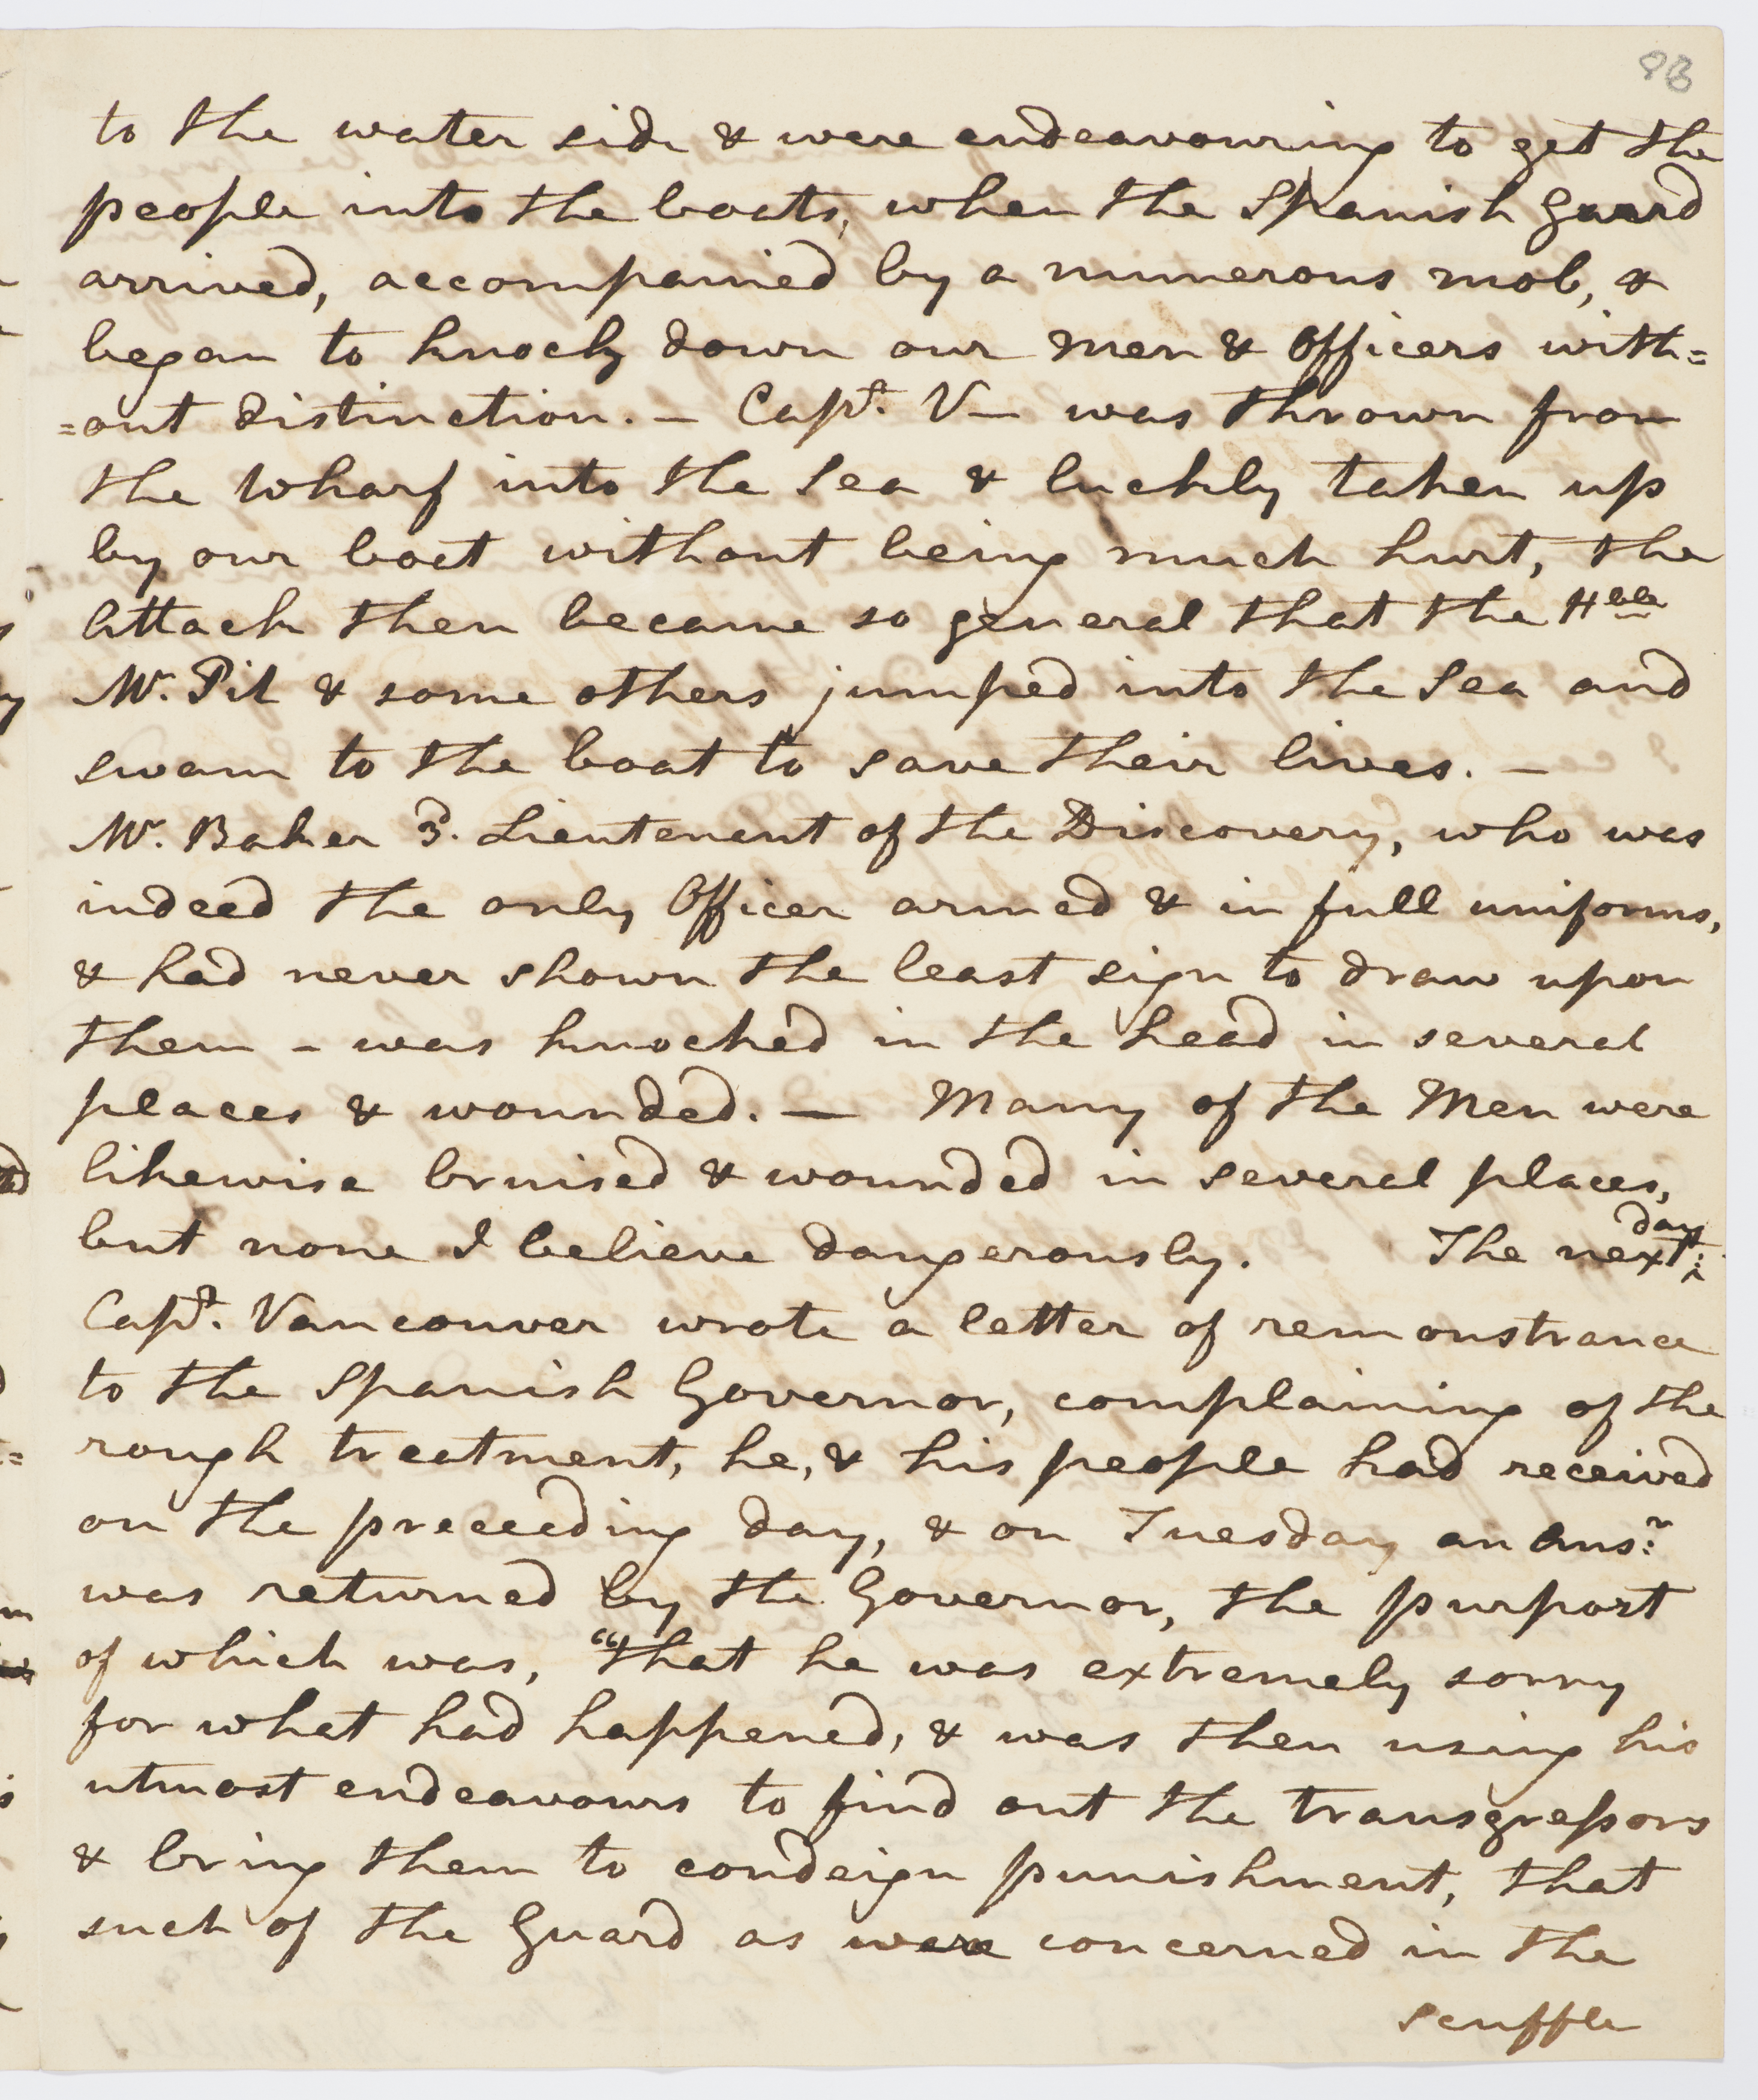 98
to the water side & were endeavouring to get the
people into the boats, when the Spanish Guard
arrived, accompanied by a numerous mob, &
began to knock down our men & Officers with=
=out distinction. — Capt. V— was thrown from
the Wharf into the Sea & luckily taken up
by our boat without being much hurt, the
Attack then became so general that the Hble
Mr. Pit & some others jumped into the Sea and
swam to the boat to save their lives. —
Mr. Baker 3. Lieutenent of the Discovery, who was
indeed the only Officer armed & in full uniforms,
& had never shown the least sign to draw upon
them – was knocked in the head in several
places & wounded. — Many of the Men were
likewise bruised & wounded in several places,
but none I believe dangerously. The next day
Capt. Vancouver wrote a letter of remonstrance
to the Spanish Governor, complaining of the
rough treatment, he, & his people had received
on the preceeding day, & on Tuesday an Ansr.
was returned by the Governor, the purport
of which was, "that he was extremely sorry
for what had happened, & was then using his
utmost endeavours to find out the transgressors
& bring them to condeign punishment, that
such of the Guard as were concerned in the
scuffle